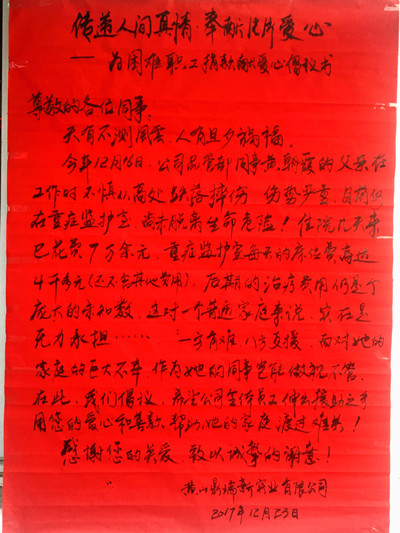 传递人间真情·奉献片片爱心
——为困难职工捐款献爱心倡议书
尊敬的各位同事:
天有不测風雲,人有旦夕祸福。
今年12月16日,公司品管部同事黄 霞的父亲在
工作时不慎从高处跌落摔伤 伤势严重,目前仍
在重症监护室 尚未脱离生命危险!住院九天来
已花费7万余元,重症监护室每天的床位费高达
4千多元(还不含其他费用),后期的治疗费用仍是个
庞大的未知数,这对一个普通家庭来说,实在是
无力承担…… 一方有难 八方支援,面对她的
家庭的巨大不幸,作为她的同事岂能做视不管。
在此,我们倡议,希望公司全体员工 伸出援助之手
用您的爱心和善款 帮助她的家庭 渡过难关!
感谢您的关爱,致以诚挚的谢意!
黄山鼎瑞新实业有限公司
2017年12月23日